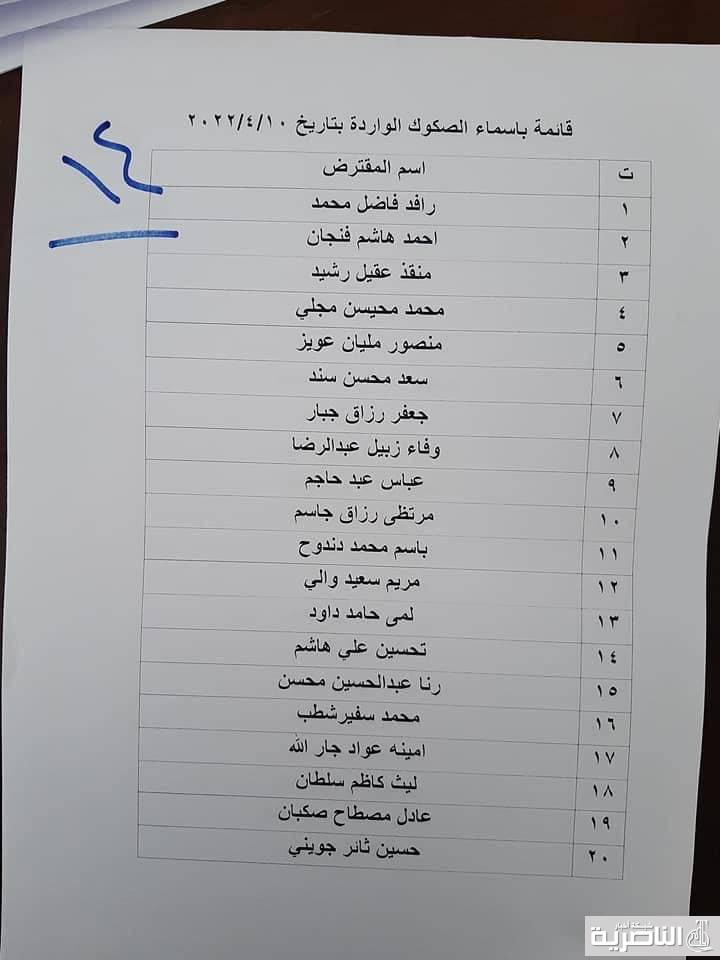 قائمة باسماء الصكوك الواردة بتاريخ ٢٠٢٢/٤/١٠
١٤
ت اسم المقترض
١ رافد فاضل محمد
٢ احمد هاشم فنجان
٣ منقذ عقيل رشيد
٤ محمد محيسن مجلي
٥ منصور مليان عويز
٦ سعد محسن سند
٧ جعفر رزاق جبار
٨ وفاء زبيل عبدالرضا
٩ عباس عبد حاجم
١٠ مرتظى رزاق جاسم
١١ باسم محمد دندوح
١٢ مريم سعيد والي
١٣ لمى حامد داود
١٤ تحسين علي هاشم
١٥ رنا عبدالحسين محسن
١٦ محمد سفيرشطب
١٧ امينه عواد جار الله
١٨ ليث كاظم سلطان
١٩ عادل مصطاح صكبان
٢٠ حسين ثائر جويني
شبكة اخبار
الناصرية